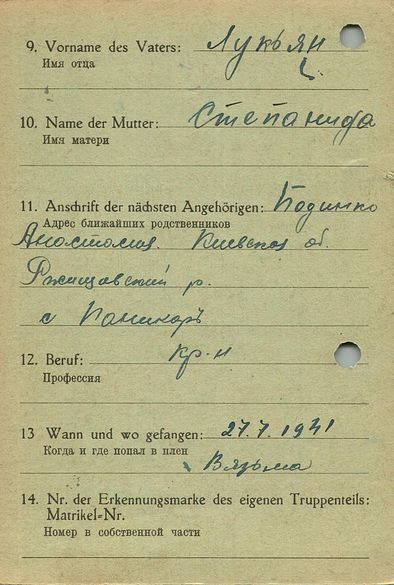 9. Vorname des Vaters: Лукьян
Имя отца
10. Name der Mutter: Степанида
Имя матери
11. Anschrift der nächsten Angehörigen: Подинко
Адрес ближайших родственников
Анастасия. Киевская об.
Ржищовский р.
с
12. Beruf: кр-н
Профессия
13 Wann und wo gefangen: 27.7.1941
Когда и где попал в плен
Вязьма
14. Nr. der Erkennungsmarke des eigenen Truppenteils:
Matrikel=Nr.
Номер в собственной части